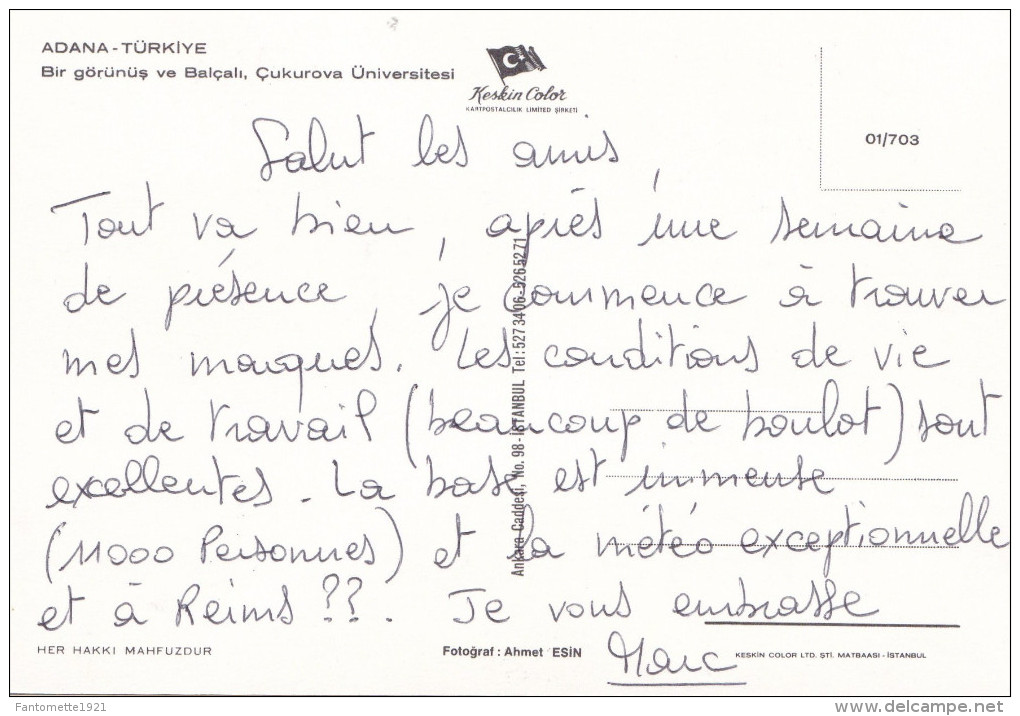 ADANA - TÜRKİYE
Bir görünüş ve Balçalı, Çukurova Üniversitesi
Keskin Color
KARTPOSTALCILIK LIMITED ŞİRKETİ
01/703
Salut les amis,
Tout va bien, après une semaine
de présence, je commence à trouver
mes marques. Les conditions de vie
et de travail (beaucoup de boulot) sont
excellentes. La base est immense
(11000 Personnes) et la météo exceptionnelle
et à Reims ??. Je vous embrasse
Marc
Ankara Caddesi, No. 98 - İSTANBUL Tel: 5273406 - 5265271
HER HAKKI MAHFUZDUR
Fotoğraf : Ahmet ESİN
KESKİN COLOR LTD. ŞTİ. MATBAASI - İSTANBUL
Fantomette1921
delcampe.net